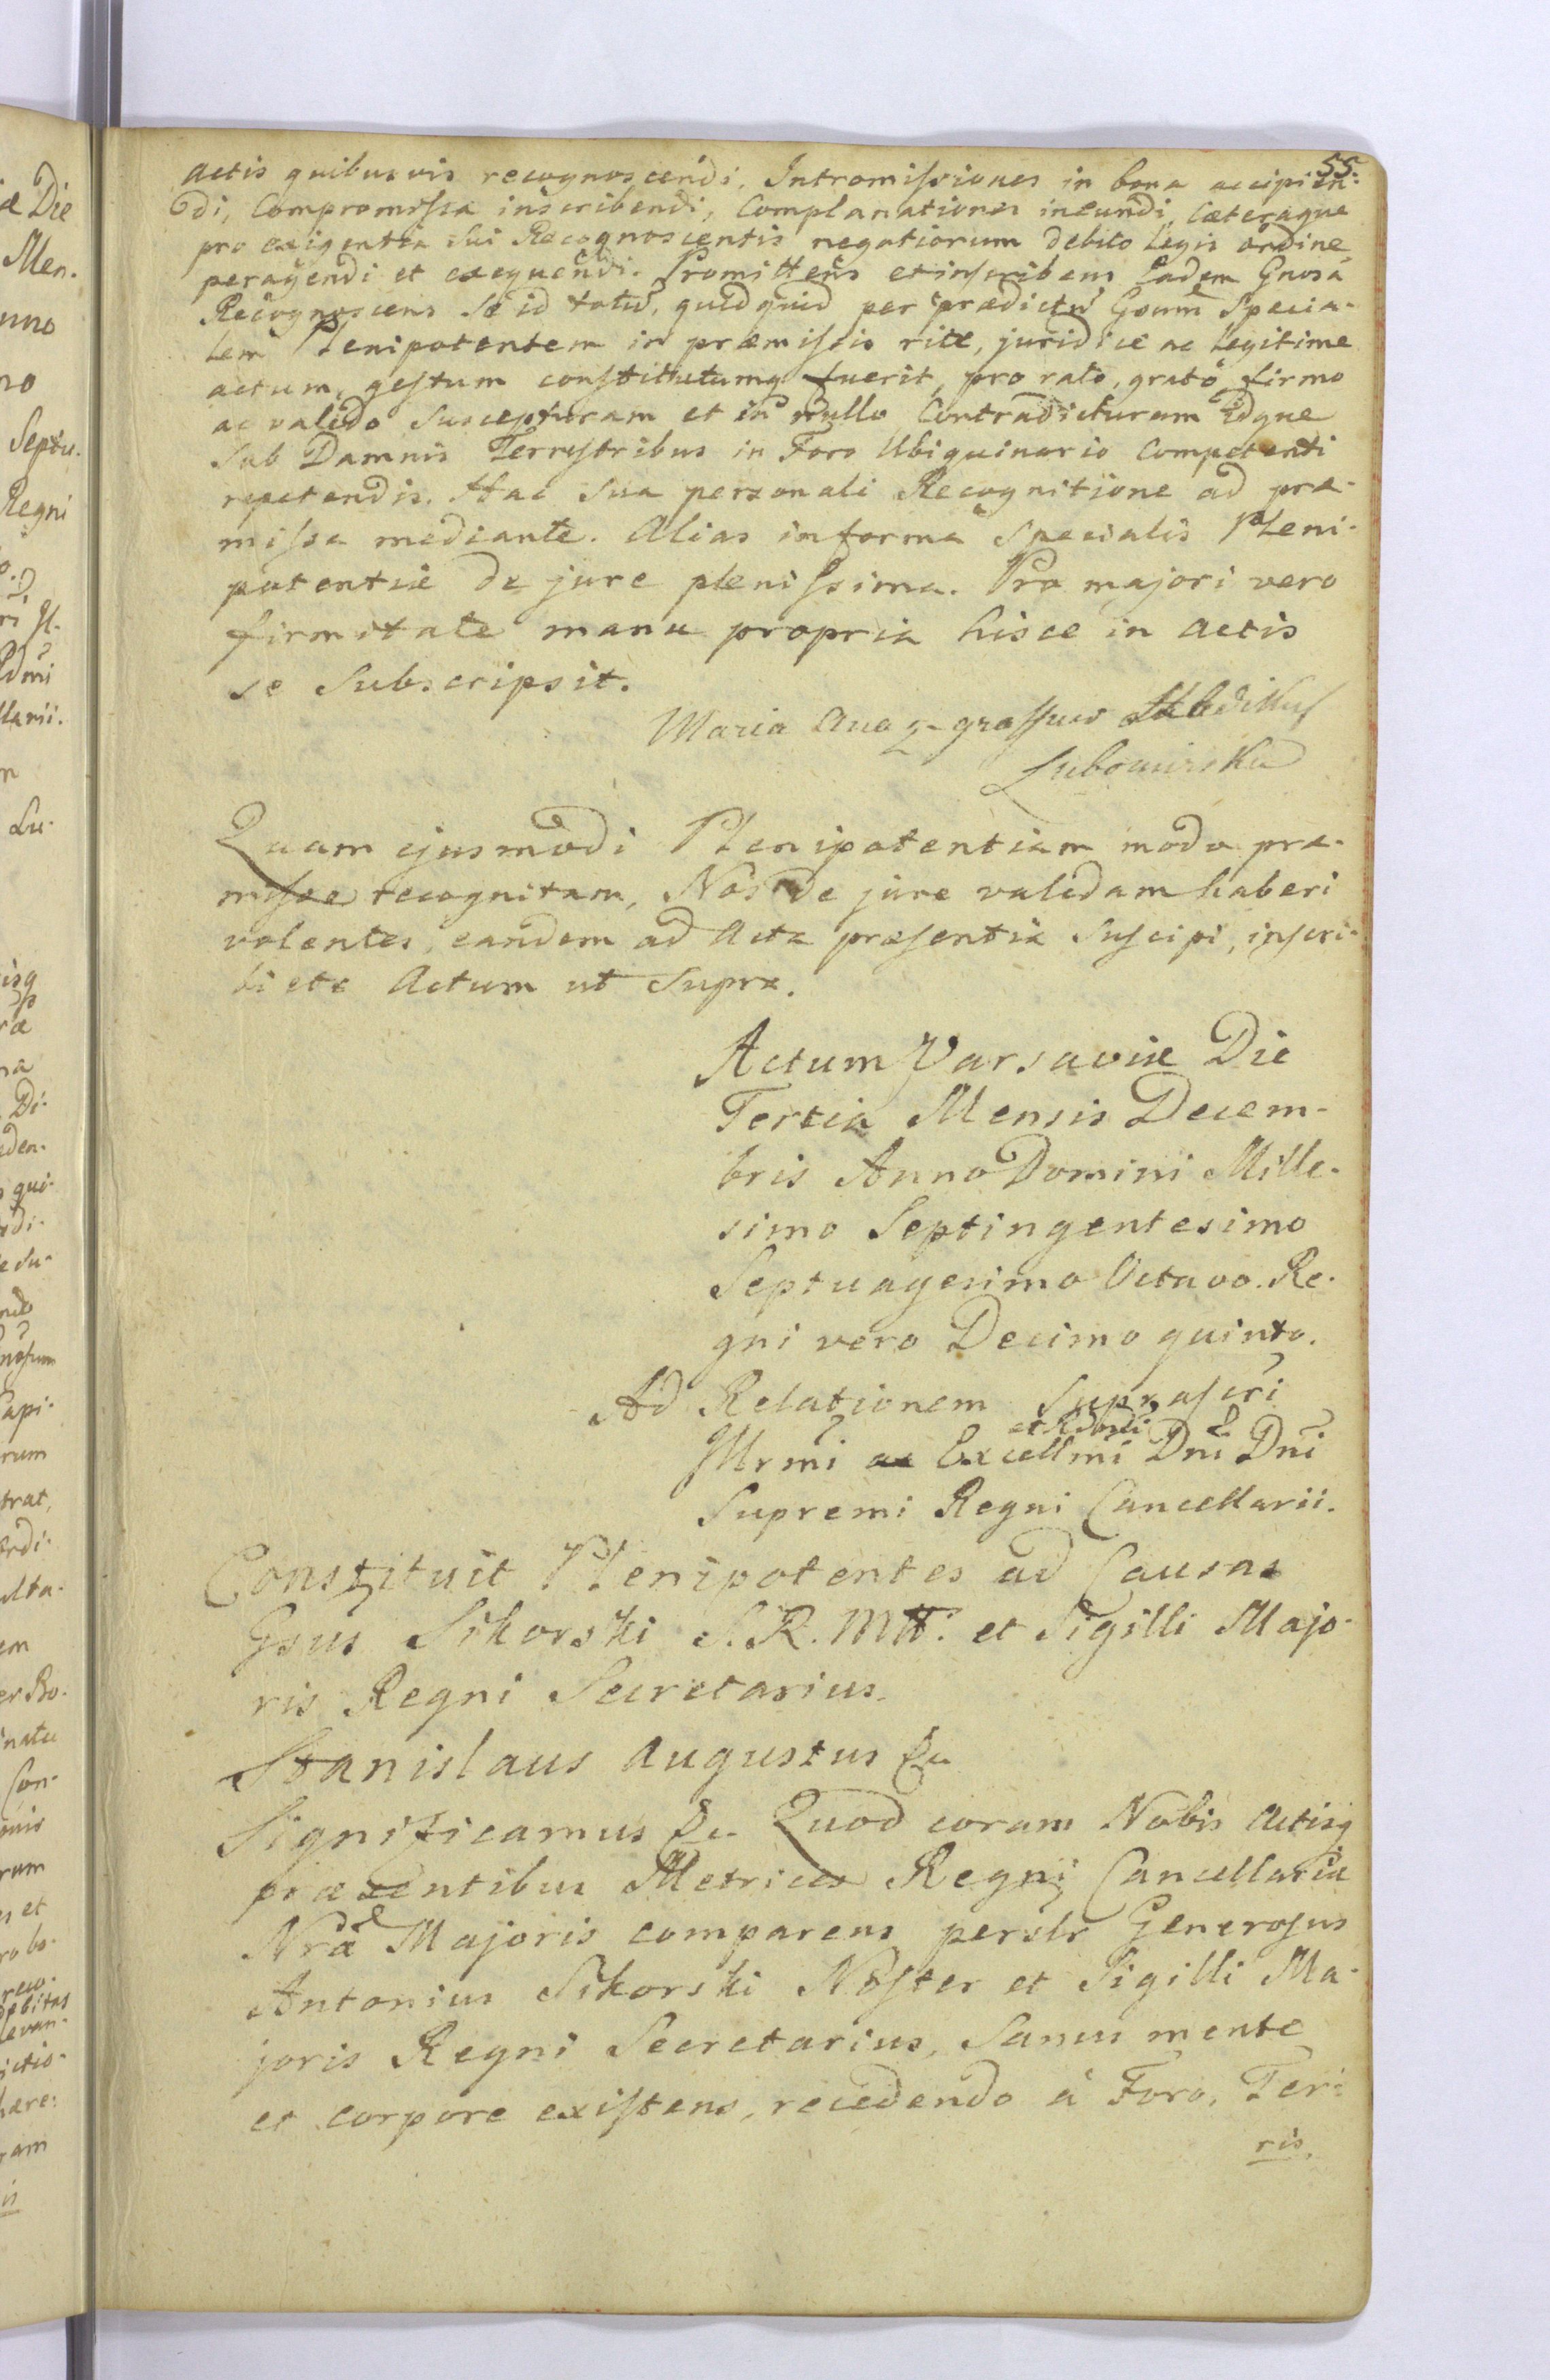 55.
actis quibusvis recognoscendi, Intromissiones in bona accipien-
di, Compromissa inscribendi, Complanationes ineundi, Cæteraque
pro exigentia sui Recognoscentis negotiorum debito Legis ordine
peragendi et exequendi. Promittens et inscribens Eadem Gnosa
Recognoscens se id totũ, quidquid per prædictũ Gsum Specia-
lem Plenipotentem in præmissis rite, juridice ac Legitime
actum, gestum constitutumq fuerit, pro rato, grato firmo
ac valido suscepturam et in nullo Contradicturam Idque
Sub Damnis Terrestribus in Foro Ubiquinario Competenti
repetendis. Hac sua personali Recognitione ad præ-
missa mediante. Alias in forma Specialis Pleni-
potentiæ de jure plenissima. Pro majori vero
firmitate manu propria hisce in actis
se Subscripsit.
Maria Anna
Lubomirska
Quam ejusmodi Plenipotentiam modo præ-
misso recognitam, Nos de jure validam haberi
volentes, eandem ad Acta præsentia Suscipi, inscri-
bi etc Actum ut Supra.
Actum Varsaviæ Die
Tertia Mensis Decem-
bris Anno Domini Mille-
simo Septingentesimo
Septuagesimo Octavo. Re-
gni vero Decimo quinto.
Ad Relationem Suprascri
et Rdmi
Illrmi ac Excellmi Dni Dni
Supremi Regni Cancellarii.
Constituit Plenipotentes ad Causas
Gsus Sikorski S. R. Mtt. et Sigilli Majo-
ris Regni Secretarius.
Stanislaus Augustus &c
Significamus &c Quod coram Nobis Actisq
præsentibus Metrices Regni Cancellariæ
Nræ Majoris comparens persolr Generosus
Antonius Sikorski Noster et Sigilli Ma-
joris Regni Secretarius, Sanus mente
et corpore existens, recedendo à Foro, Ter-
ris.